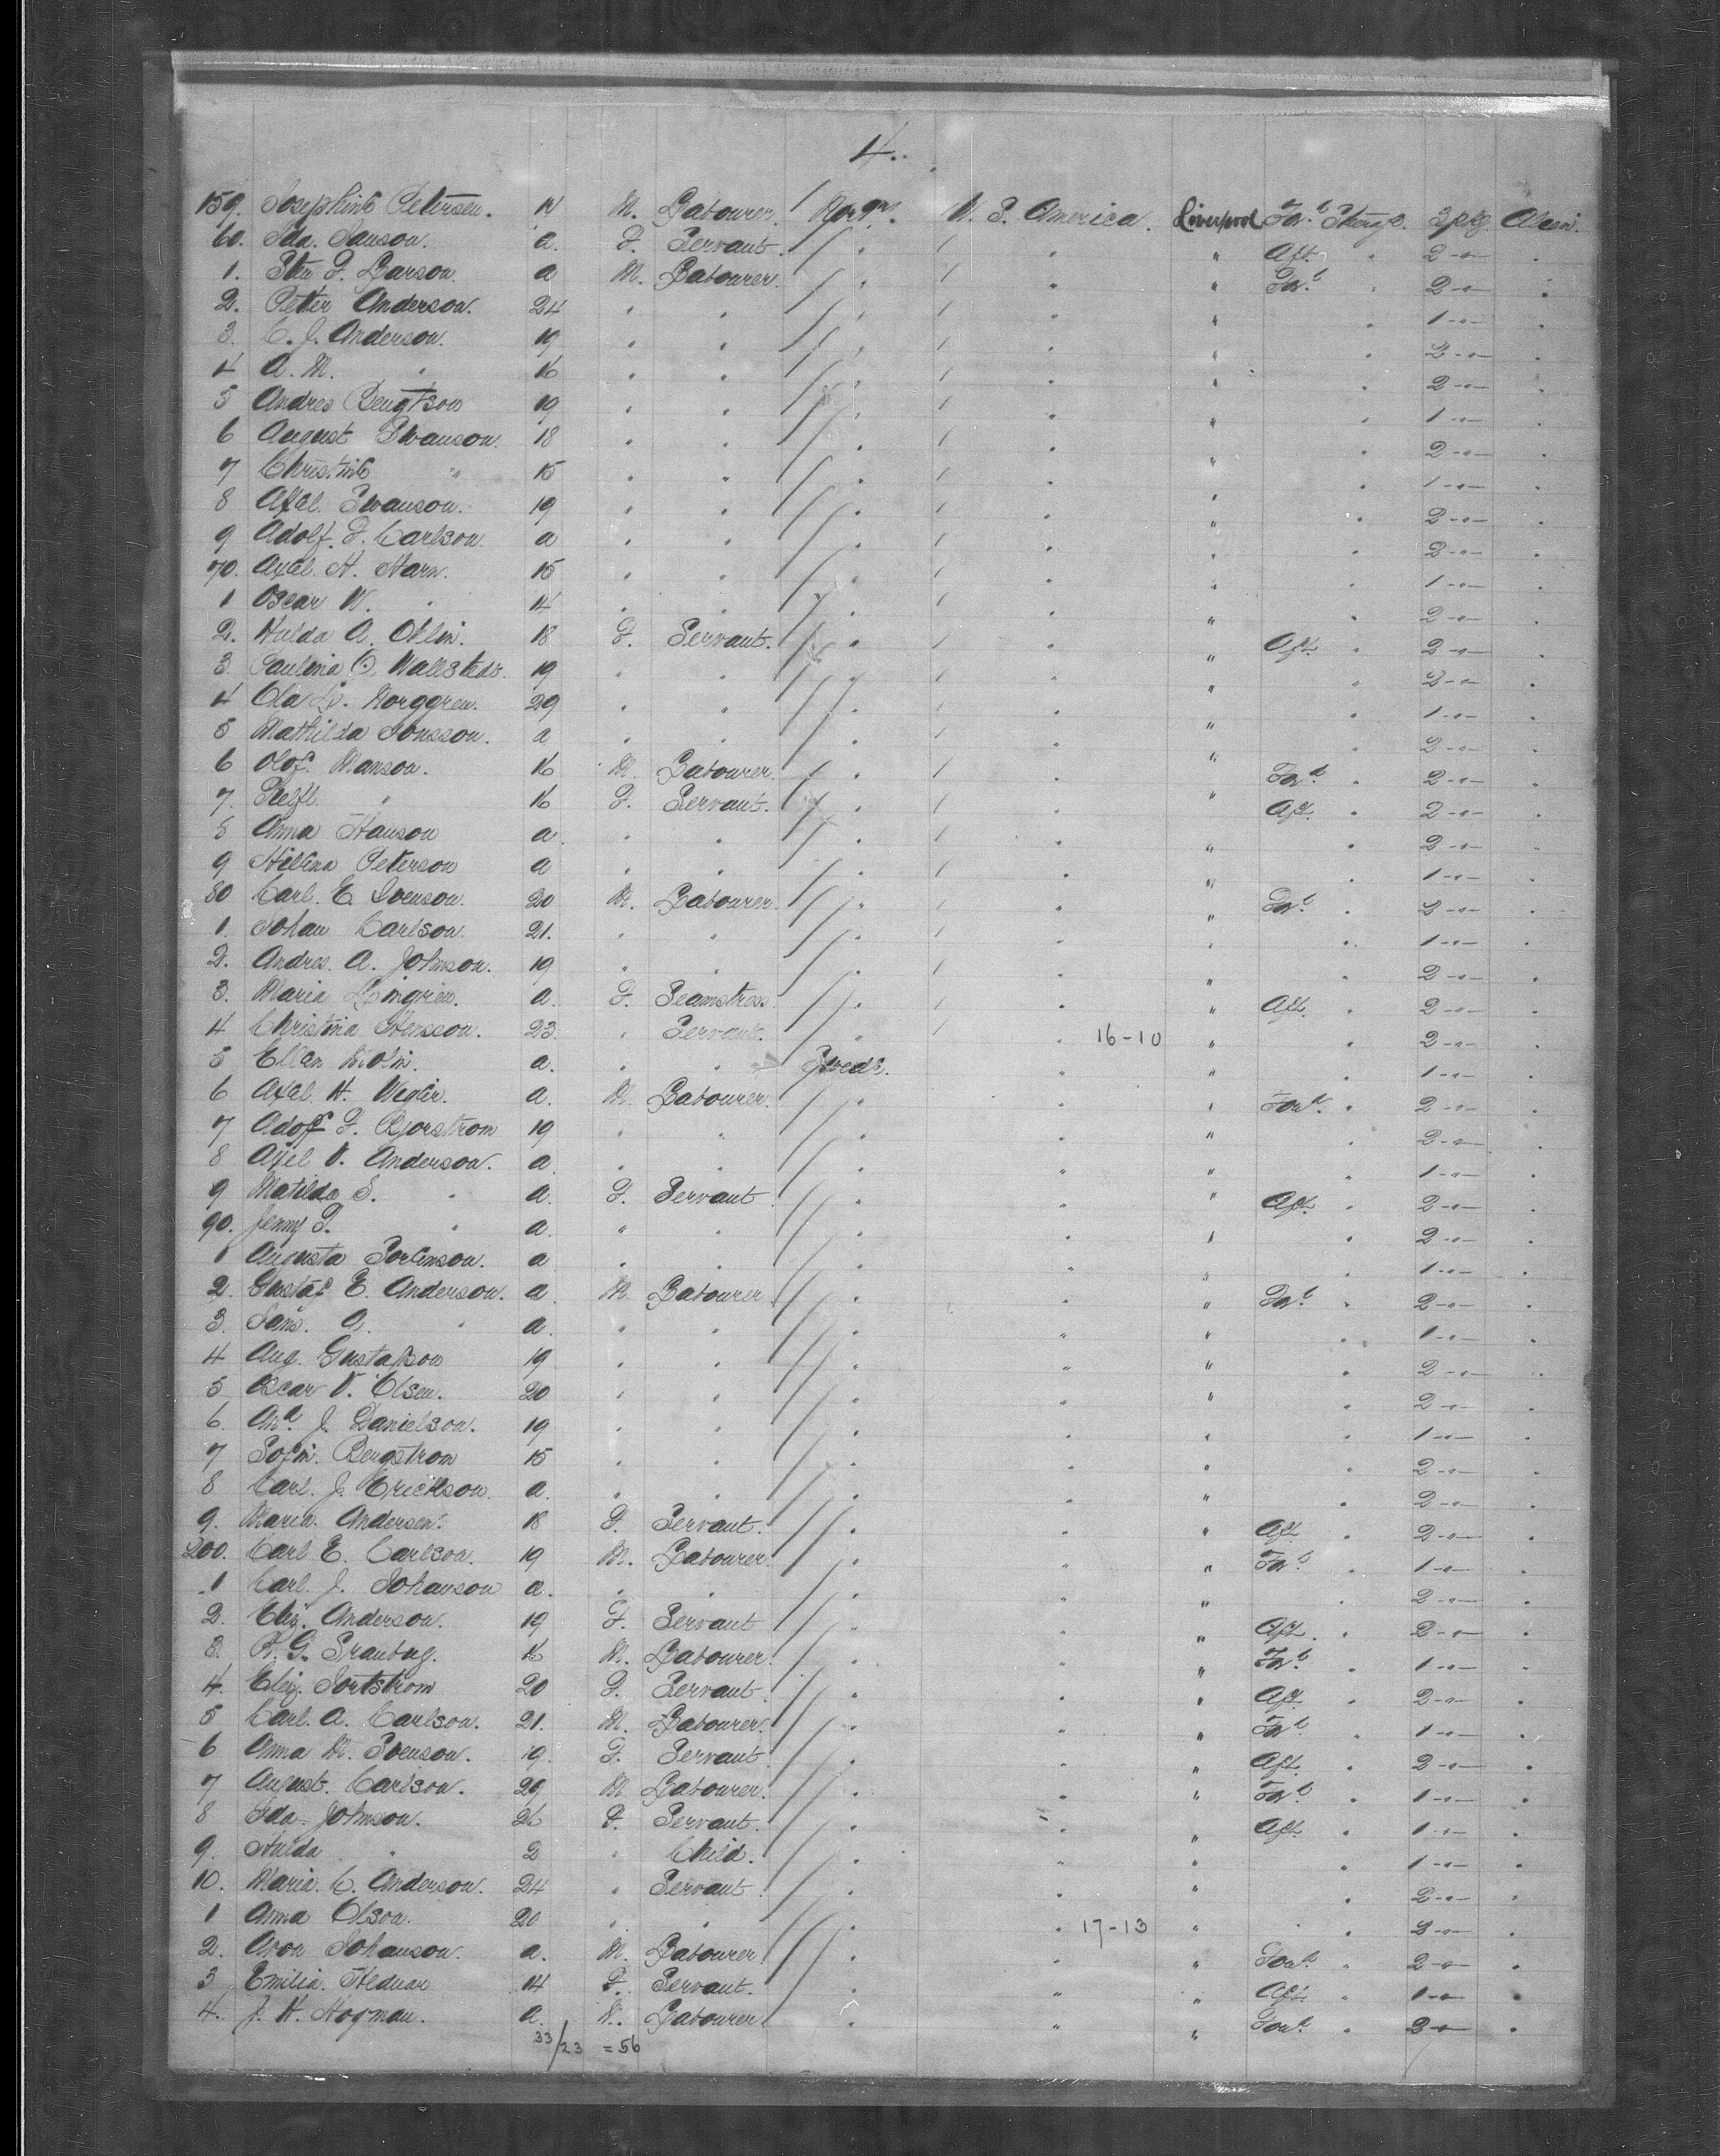 4.
159. Josephine Petersen. 14 M. Labourer. Norgn. U. S. America. Liverpool For'd Steerge. 3 pkg Alein.
60. Ida Janson. a. F. Servant. " " " Aft. " 2 -"- "
1. Sten F. Larson a M. Labourer. " " " For'd " 2 -"- "
2. Peter Anderson. 24 " " " " " " 1 -"- "
3. C. J. Anderson. 19 " " " " " " 3 -"- "
4 A. M. " 16 " " " " " " 2 -"- "
5 Andres Bengtson 19 " " " " " " 1 -"- "
6 August Swanson. 18 " " " " " " 2 -"- "
7 Christine " 15 " " " " " " 1 -"- "
8 Axel. Swanson. 19 " " " " " " 2 -"- "
9 Adolf. F. Carlson. a " " " " " " 2 -"- "
70. Axel. H. Harn. 15 " " " " " " 1 -"- "
1 Oscar W. " 14 " " " " " " 2 -"- "
2. Hulda A. Ohlin. 18 F. Servant. " " " Aft. " 2 -"- "
3. Paulina C. Wallstedt. 19 " " " " " " 3 -"- "
4 Norggren. 29 " " " " " " 1 -"- "
5 Mathilda Jonsson. a " " " " " " 2 -"- "
6 Olof. Manson. 16 M. Labourer. " " " For'd " 2 -"- "
7. " 16 F. Servant. " " " Aft. " 2 -"- "
8 Anna Hanson a " " " " " " 2 -"- "
9 Helena Peterson a " " " " " " 1 -"- "
80 Carl. E. Svenson. 20 M. Labourer. " " " For'd " 3 -"- "
1. Johan Carlson. 21. " " " " " " 1 -"- "
2. Andres. A. Johnson. 19 " " " " " " 2 -"- "
3. Maria Longrien. a. F. Seamstress. " " " Aft. " 2 -"- "
4 Christina Svensson. 23. " Servant. " " 16-10 " " 2 -"- "
5 Ellen Molin. a. " " Swed'n. " " " 1 -"- "
6 Axel. H. Wegler. a. M. Labourer. " " " For'd. " 2 -"- "
7 Adolf F. Bjorstrom 19 " " " " " " 2 -"- "
8 Axel V. Anderson. a " " " " " " 1 -"- "
9 Matilda S. " a. F. Servant " " " Aft. " 2 -"- "
90. Jenny S. " a. " " " " " " 2 -"- "
1 Augusta Sorenson. a " " " " " " 1 -"- "
2. Gustaf E. Anderson. a M. Labourer " " " For'd " 2 -"- "
3. A. " a. " " " " " " 1 -"- "
4 Aug. Gustafson 19 " " " " " " 2 -"- "
5 Oscar V. Olsen. 20 " " " " " " 2 -"- "
6. And. J. Danielson. 19 " " " " " " 1 -"- "
7 Bergstrom 15 " " " " " " 2 -"- "
8 Carl. J. Erickson. a. " " " " " " 2 -"- "
9. Maria. Andersen. 18 F. Servant. " " " Aft " 2 -"- "
200. Carl E. Carlson. 19 M. Labourer. " " " For'd " 1 -"- "
1 Carl. J. Johanson a. " " " " " " 2 -"- "
2. Eliz. Anderson. 19 F. Servant " " " Aft. " 2 -"- "
3. G. 16 M. Labourer. " " " For'd " 1 -"- "
4. Eliz. Sortstrom 20 F. Servant. " " " Aft. " 2 -"- "
5 Carl. A. Carlson. 21. M. Labourer. " " " For'd " 1 -"- "
6 Anna M. Svenson. 19. F. Servant " " " Aft. " 2 -"- "
7 August. Carlson. 29 M Labourer. " " " For'd " 1 -"- "
8 Ida. Johnson. 26 F. Servant. " " " Aft. " 1 -"- "
9. Hulda " 2 " Child. " " " " 1 -"- "
10. Maria. C. Anderson. 24 " Servant. " " " " 2 -"- "
1 Anna Olson. 20 " " " " 17-13 " " 3 -"- "
2. Aron Johanson. a. M. Labourer " " " For'd. " 2 -"- "
3 Emilia. Hedman 14 F. Servant. " " " Aft. " 1 -"- "
4. J. H. Hogman. a. M. Labourer. " " " For'd. " 2 -"- "
33/23 = 56